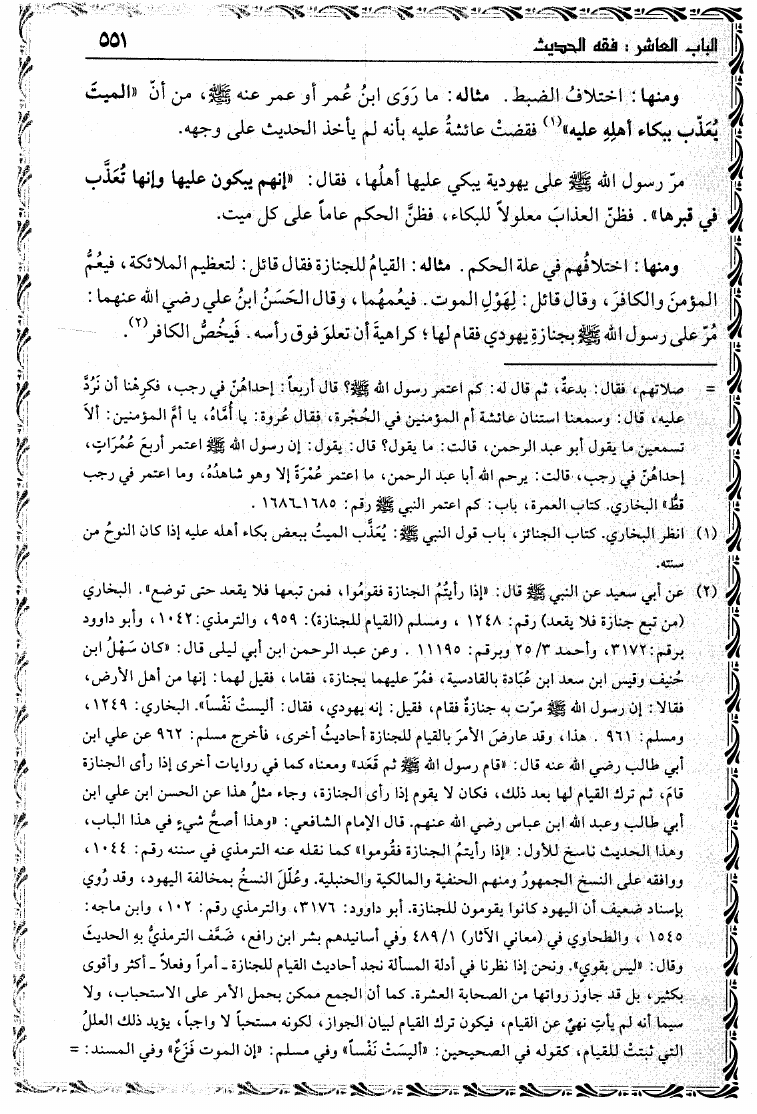 الباب العاشر : فقه الحديث
٥٥١
ومنها: اختلافُ الضبط. مثاله: ما رَوَى ابنُ عُمر أو عمر عنه ﷺ، من أنّ «الميتَ
يُعَذّب ببكاء أهلِهِ عليه»(١) فقضتْ عائشةُ عليه بأنه لم يأخذ الحديث على وجهه.
مرّ رسول الله ﷺ على يهودية يبكي عليها أهلُها، فقال: «إنهم يبكون عليها وإنها تُعَذَّب
في قبرها». فظنّ العذابَ معلولاً للبكاء، فظنَّ الحكم عاماً على كل ميت.
ومنها: اختلافُهم في علة الحكم. مثاله: القيامُ للجنازة فقال قائل: لتعظيم الملائكة، فيعُمُّ
المؤمنَ والكافرَ، وقال قائل: لِهَوْلِ الموت. فيعمهُما، وقال الحَسَنُ ابنُ علي رضي الله عنهما:
مُرّ على رسول الله ﷺ بجنازةِ يهودي فقام لها؛ كراهيةَ أن تعلوَ فوق رأسه. فَيخُصُّ الكافر(٢).
= صلاتهم، فقال: بدعةٌ، ثم قال له: كم اعتمر رسول الله ﷺ؟ قال أربعاً: إحداهُنّ في رجب، فكرِهْنا أن نَرُدَّ
عليه، قال: وسمعنا استنان عائشة أم المؤمنين في الحُجْرة، فقال عُروة: يا أُمَّاهُ، يا أمَّ المؤمنين: ألاَ
تسمعين ما يقول أبو عبد الرحمن، قالت: ما يقول؟ قال: يقول: إن رسول الله ﷺ اعتمر أربعَ عُمُرَاتٍ،
إحداهُنّ في رجب، قالت: يرحم الله أبا عبد الرحمن، ما اعتمر عُمْرَةً إلا وهو شاهدُهُ، وما اعتمر في رجب
قطُّ» البخاري. كتاب العمرة، باب: كم اعتمر النبي ﷺ رقم: ١٦٨٥ـ١٦٨٦ .
(١) انظر البخاري. كتاب الجنائز، باب قول النبي ﷺ: يُعَذَّب الميتُ ببعض بكاء أهله عليه إذا كان النوحُ من
سنته.
(٢) عن أبي سعيد عن النبي ﷺ قال: «إذا رأيتُمُ الجنازة فقومُوا، فمن تبعها فلا يقعد حتى توضع». البخاري
(من تبع جنازة فلا يقعد) رقم: ١٢٤٨ ، ومسلم (القيام للجنازة): ٩٥٩، والترمذي: ١٠٤٢، وأبو داوود
برقم: ٣١٧٢، وأحمد ٢٥/٣ وبرقم: ١١١٩٥ . وعن عبد الرحمن ابن أبي ليلى قال: «كان سَهْلُ ابن
حُنيف وقيس ابن سعد ابن عُبَادة بالقادسية، فمُرّ عليهما بجنازة، فقاما، فقيل لهما: إنها من أهل الأرض،
فقالا: إن رسول الله ﷺ مرّت به جنازةٌ فقام، فقيل: إنه يهودي، فقال: أليستْ نَفْساً». البخاري: ١٢٤٩،
ومسلم: ٩٦١ . هذا، وقد عارضَ الأمرَ بالقيام للجنازة أحاديثُ أخرى، فأخرج مسلم: ٩٦٢ عن علي ابن
أبي طالب رضي الله عنه قال: «قام رسول الله ﷺ ثم قَعَد» ومعناه كما في روايات أخرى إذا رأى الجنازة
قامَ، ثم ترك القيام لها بعد ذلك، فكان لا يقوم إذا رأى الجنازة، وجاء مثلُ هذا عن الحسن ابن علي ابن
أبي طالب وعبد الله ابن عباس رضي الله عنهم. قال الإمام الشافعي: «وهذا أصحُّ شيءٍ في هذا الباب،
وهذا الحديث ناسخ للأول: «إذا رأيتمُ الجنازة فقُوموا» كما نقله عنه الترمذي في سننه رقم: ١٠٤٤ ،
ووافقه على النسخ الجمهورُ ومنهم الحنفية والمالكية والحنبلية. وعُلّلَ النسخُ بمخالفة اليهود، وقد رُوي
بإسناد ضعيف أن اليهود كانوا يقومون للجنازة. أبو داوود: ٣١٧٦، والترمذي رقم: ١٠٢، وابن ماجه:
١٥٤٥ ، والطحاوي في (معاني الآثار) ٤٨٩/١ وفي أسانيدهم بشر ابن رافع، ضَعَّف الترمذيُّ بهِ الحديثَ
وقال: «ليس بقوي». ونحن إذا نظرنا في أدلة المسألة نجد أحاديث القيام للجنازة ـ أمراً وفعلاً ـ أكثر وأقوى
بكثير، بل قد جاوز رواتها من الصحابة العشرة. كما أن الجمع ممكن بحمل الأمر على الاستحباب، ولا
سيما أنه لم يأتِ نهيٌ عن القيام، فيكون ترك القيام لبيان الجواز، لكونه مستحباً لا واجباً، يؤيد ذلك العللُ
التي ثبتتْ للقيام، كقوله في الصحيحين: «أليسَتْ نَفْساً» وفي مسلم: «إن الموت فَزَعٌ» وفي المسند: =